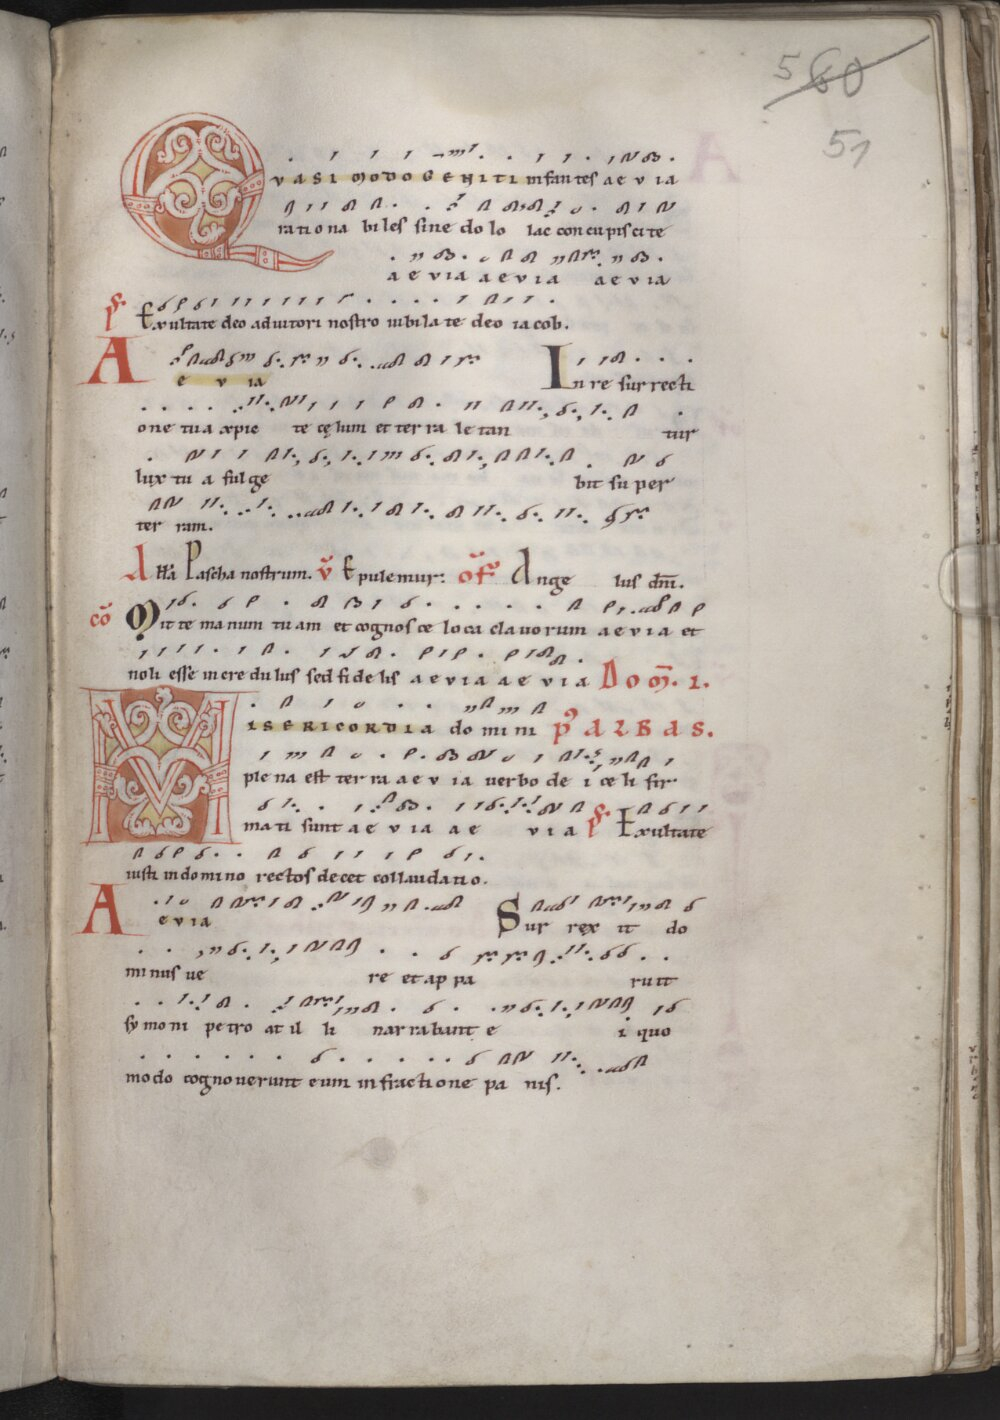 5 60
51
QVASI MODO GENITI infantes aevia
rationabiles sine dolo lac concupiscite
aevia aevia aevia
ps̄. Exultate deo adiutori nostro iubilate deo iacob.
Aevia In resurrecti
one tua xp̄ie te cęlum et terra letan tur
lux tua fulge bit super
terram.
All'a Pascha nostrum. v̄ Epulemur: of̄f Ange lus dn̄i.
cō Mitte manum tuam et cognosce loca clauorum aevia et
noli esse incredulus sed fidelis aevia aevia Dom̄. 1.
MISERICORDIA domini p' ALBAS.
plena est terra aevia uerbo dei celi fir
mati sunt aevia aevia ps̄. Exultate
iusti in domino rectos decet collaudatio.
Aevia Surrex it do
minus ue re et appa ruit
symoni petro at il li narrabunt e i quo
modo cognouerunt eum in fractione pa nis.